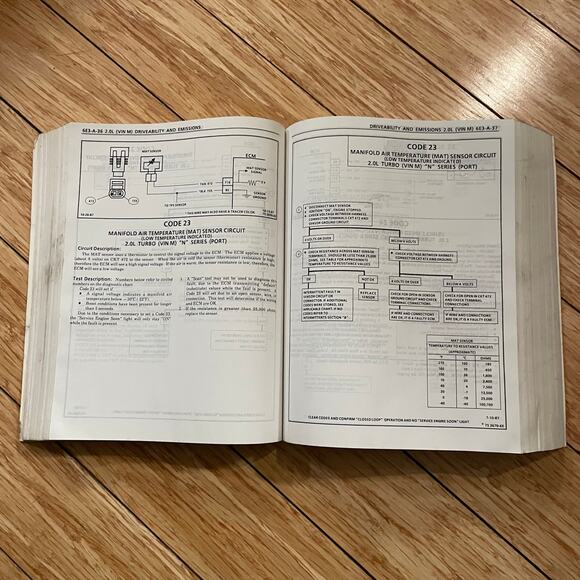 6E3-A-36 2.0L (VIN M) DRIVEABILITY AND EMISSIONS
MAT SENSOR
ECM
MAT SENSOR
SIGNAL
TAN 472
BLK
SENSOR
GROUND
TO TPS SENSOR
10-20-87
*THIS WIRE MAY ALSO HAVE A TRACER COLOR.
CODE 23
MANIFOLD AIR TEMPERATURE (MAT) SENSOR CIRCUIT
(LOW TEMPERATURE INDICATED)
2.0L TURBO (VIN M) "N" SERIES (PORT)
Circuit Description:
The MAT sensor uses a thermistor to control the signal voltage to the ECM. The ECM applies a voltage
(about 5 volts) on CKT 472 to the sensor. When the air is cold the sensor (thermistor) resistance is high,
therefore the ECM will see a high signal voltage. If the air is warm, the sensor resistance is low, therefore, the
ECM will see a low voltage.
Test Description: Numbers below refer to circled
numbers on the diagnostic chart.
1. Code 23 will set if
• A signal voltage indicates a manifold air
temperature below
• Reset conditions have been present for longer
than
Due to the conditions necessary to set a Code 23
the "Service Engine Soon" light will only stay "ON"
while the fault is present.
fault, due to the ECM transmitting "default"
(substitute) values while the fault is present. A
code 23 will set due to an open sensor, wire, or
connection. This test will determine if the wiring
and ECM are OK.
2. If the resistance is greater than 25,000 ohms,
replace the sensor.
DRIVEABILITY AND EMISSIONS 2.0L (VIN M) 6E3-A-37
CODE 23
MANIFOLD AIR TEMPERATURE (MAT) SENSOR CIRCUIT
(LOW TEMPERATURE INDICATED)
2.0L TURBO (VIN M) "N" SERIES (PORT)
1
• DISCONNECT MAT SENSOR
• IGNITION "ON", ENGINE STOPPED.
• CHECK VOLTAGE BETWEEN HARNESS
CONNECTOR TERMINALS CKT 472 AND
SENSOR GROUND CIRCUIT
4 VOLTS OR OVER
BELOW 4 VOLTS
2
• CHECK RESISTANCE ACROSS MAT SENSOR
TERMINALS. SHOULD BE LESS THAN 25,000
OHMS. SEE TABLE FOR APPROXIMATE
TEMPERATURE TO RESISTANCE VALUES
• CHECK VOLTAGE BETWEEN HARNESS
CONNECTOR CKT 472 AND GROUND.
OK
NOT OK
4 VOLTS OR OVER
BELOW 4 VOLTS
INTERMITTENT FAULT IN
SENSOR CIRCUIT OR
CONNECTOR. IF ADDITIONAL
CODES WERE STORED, SEE
APPLICABLE CHART. IF NO
CODES REFER TO
INTERMITTENTS SECTION "B".
REPLACE
SENSOR
CHECK FOR OPEN IN SENSOR
GROUND CIRCUIT AND CHECK
TERMINAL CONNECTIONS.
IF WIRE AND CONNECTIONS
ARE OK, IT IS A FAULTY ECM
CHECK FOR OPEN IN CKT 472
AND CHECK TERMINAL
CONNECTIONS.
IF WIRE AND CONNECTIONS
ARE OK, IT IS A FAULTY ECM
MAT SENSOR
TEMPERATURE TO RESISTANCE VALUES
(APPROXIMATE)
°F °C OHMS
210 100 185
160 70 450
100 38 1,800
70 20 3,400
40 4 7,500
20 -7 13,500
0 -18 25,000
-40 -40 100,700
CLEAR CODES AND CONFIRM "CLOSED LOOP" OPERATION AND NO "SERVICE ENGINE SOON" LIGHT